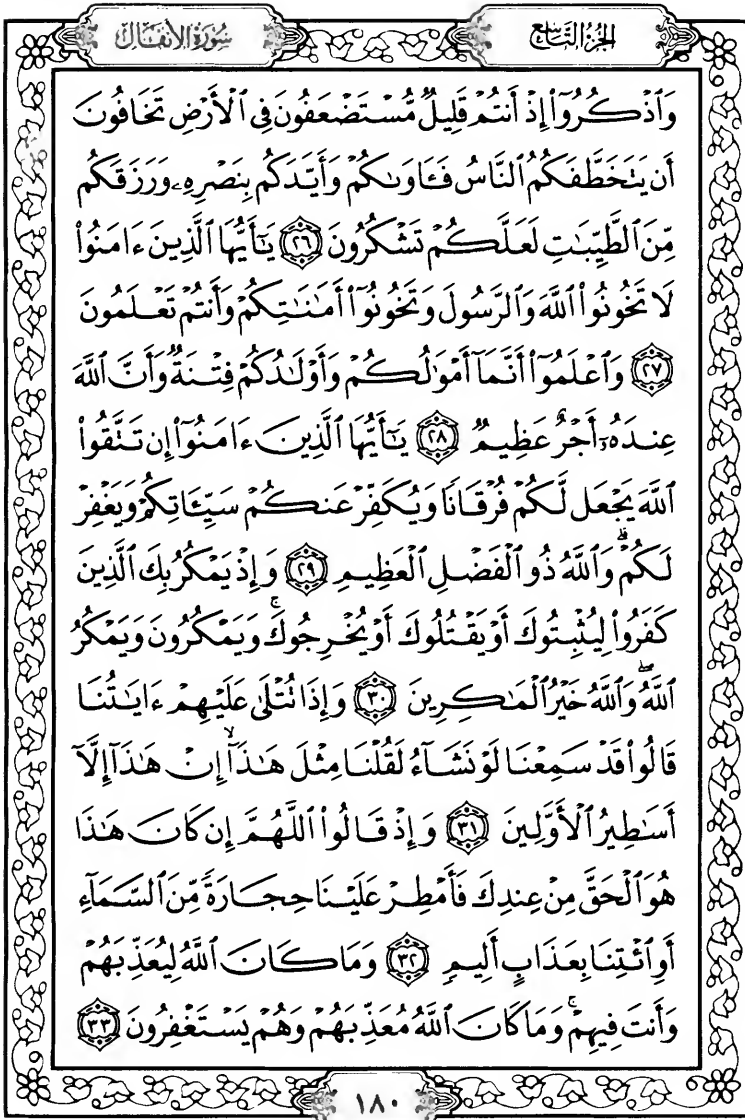 سُورَةُ الأَنفَالِ
الجُزءُ التَّاسِعُ
وَٱذۡكُرُوٓاْ إِذۡ أَنتُمۡ قَلِيلٞ مُّسۡتَضۡعَفُونَ فِي ٱلۡأَرۡضِ تَخَافُونَ
أَن يَتَخَطَّفَكُمُ ٱلنَّاسُ فَـَٔاوَىٰكُمۡ وَأَيَّدَكُم بِنَصۡرِهِۦ وَرَزَقَكُم
مِّنَ ٱلطَّيِّبَٰتِ لَعَلَّكُمۡ تَشۡكُرُونَ ٢٦ يَٰٓأَيُّهَا ٱلَّذِينَ ءَامَنُواْ
لَا تَخُونُواْ ٱللَّهَ وَٱلرَّسُولَ وَتَخُونُوٓاْ أَمَٰنَٰتِكُمۡ وَأَنتُمۡ تَعۡلَمُونَ
٢٧ وَٱعۡلَمُوٓاْ أَنَّمَآ أَمۡوَٰلُكُمۡ وَأَوۡلَٰدُكُمۡ فِتۡنَةٞ وَأَنَّ ٱللَّهَ
عِندَهُۥٓ أَجۡرٌ عَظِيمٞ ٢٨ يَٰٓأَيُّهَا ٱلَّذِينَ ءَامَنُوٓاْ إِن تَتَّقُواْ
ٱللَّهَ يَجۡعَل لَّكُمۡ فُرۡقَانٗا وَيُكَفِّرۡ عَنكُمۡ سَيِّـَٔاتِكُمۡ وَيَغۡفِرۡ
لَكُمۡۗ وَٱللَّهُ ذُو ٱلۡفَضۡلِ ٱلۡعَظِيمِ ٢٩ وَإِذۡ يَمۡكُرُ بِكَ ٱلَّذِينَ
كَفَرُواْ لِيُثۡبِتُوكَ أَوۡ يَقۡتُلُوكَ أَوۡ يُخۡرِجُوكَۚ وَيَمۡكُرُونَ وَيَمۡكُرُ
ٱللَّهُۖ وَٱللَّهُ خَيۡرُ ٱلۡمَٰكِرِينَ ٣٠ وَإِذَا تُتۡلَىٰ عَلَيۡهِمۡ ءَايَٰتُنَا
قَالُواْ قَدۡ سَمِعۡنَا لَوۡ نَشَآءُ لَقُلۡنَا مِثۡلَ هَٰذَآۙ إِنۡ هَٰذَآ إِلَّآ
أَسَٰطِيرُ ٱلۡأَوَّلِينَ ٣١ وَإِذۡ قَالُواْ ٱللَّهُمَّ إِن كَانَ هَٰذَا
هُوَ ٱلۡحَقَّ مِنۡ عِندِكَ فَأَمۡطِرۡ عَلَيۡنَا حِجَارَةٗ مِّنَ ٱلسَّمَآءِ
أَوِ ٱئۡتِنَا بِعَذَابٍ أَلِيمٖ ٣٢ وَمَا كَانَ ٱللَّهُ لِيُعَذِّبَهُمۡ
وَأَنتَ فِيهِمۡۚ وَمَا كَانَ ٱللَّهُ مُعَذِّبَهُمۡ وَهُمۡ يَسۡتَغۡفِرُونَ ٣٣
١٨٠